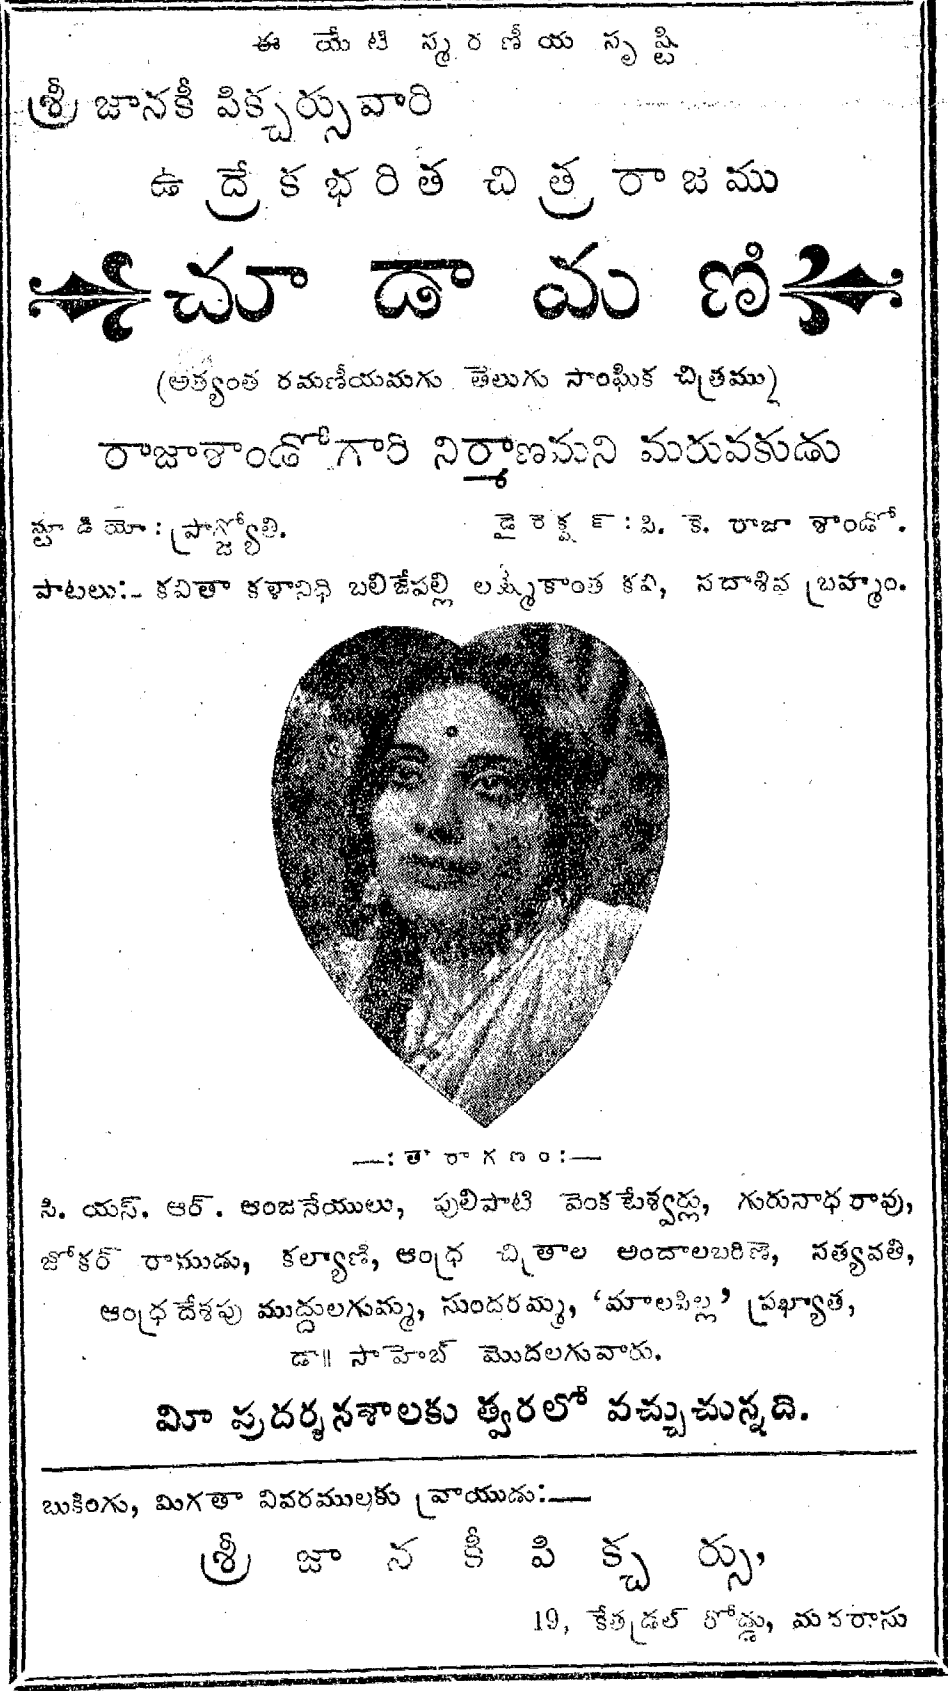 ఈ యేటి స్మరణీయ సృష్టి
శ్రీ జానకీ పిక్చర్సువారి
ఉద్రేకభరిత చిత్రరాజము
చూడామణి
(అత్యంత రమణీయమగు తెలుగు సాంఘిక చిత్రము)
రాజాశాండోగారి నిర్మాణమని మరువకుడు
స్టూడియో: ప్రాగ్జ్యోతి. డైరెక్షన్: పి. కె. రాజా శాండో.
పాటలు:- కవితా కళానిధి బలిజేపల్లి లక్ష్మీకాంత కవి, సదాశివ బ్రహ్మం.
—: తారాగణం:—
సి. యస్. ఆర్. ఆంజనేయులు, పులిపాటి వెంకటేశ్వర్లు, గురునాధరావు,
జోకర్ రాముడు, కల్యాణి, ఆంధ్ర చిత్రాల అందాలబరిణె, సత్యవతి,
ఆంధ్రదేశపు ముద్దులగుమ్మ, సుందరమ్మ, ‘మాలపిల్ల’ ప్రఖ్యాత,
డా॥ సాహెబ్ మొదలగువారు.
మీ ప్రదర్శనశాలకు త్వరలో వచ్చుచున్నది.
బుకింగు, మిగతా వివరములకు వ్రాయుడు:—
శ్రీ జానకీ పిక్చర్సు,
19, కేతడ్రల్ రోడ్డు, మదరాసు